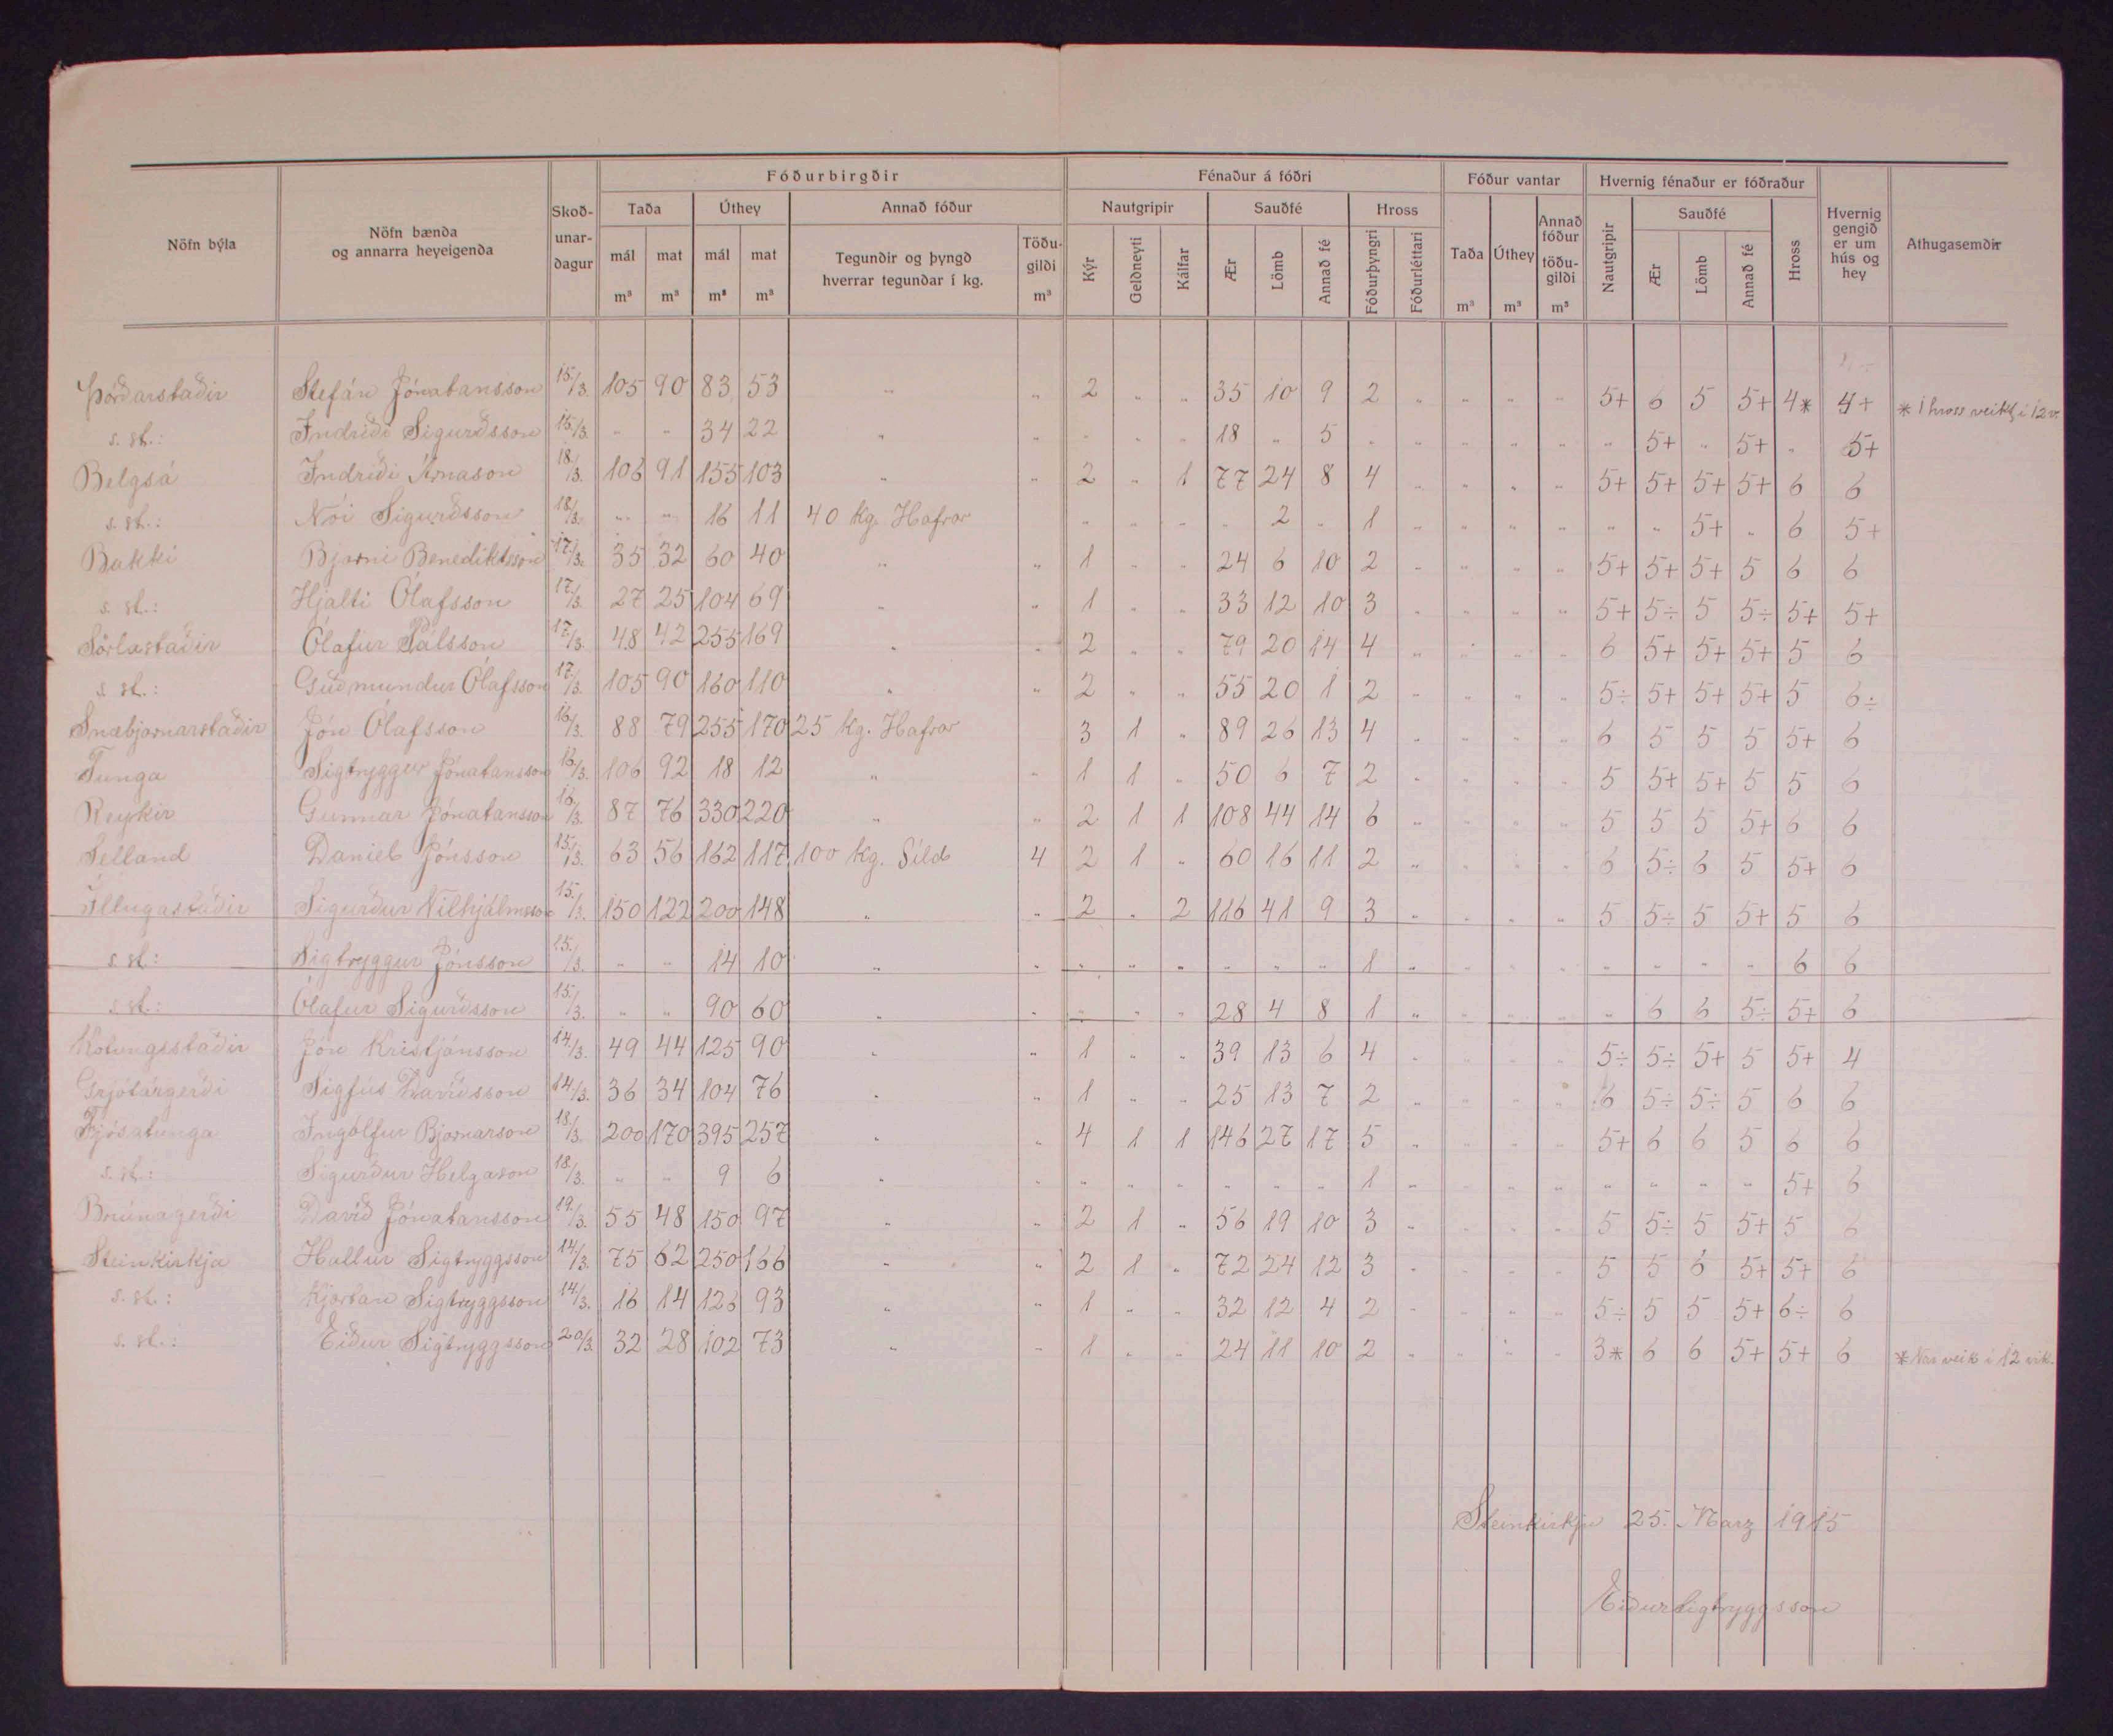 Nöfn býla | Nöfn bænda og annarra heyeigenda | Skoð-unar-dagur | Fóðurbirgðir | Fénaður á fóðri | Fóður vantar | Hvernig fénaður er fóðraður | Hvernig gengið er um hús og hey | Athugasemdir
Taða | Úthey | Annað fóður | Nautgripir | Sauðfé | Hross | Taða m³ | Úthey m³ | Annað fóður töðu-gildi m³ | Nautgripir | Sauðfé | Hross
mál m³ | mat m³ | mál m³ | mat m³ | Tegundir og þyngd hverrar tegundar í kg. | Töðu-gildi m³ | Kýr | Geldneyti | Kálfar | Ær | Lömb | Annað fé | Fóðurþyngri | Fóðurléttari | Ær | Lömb | Annað fé
Þórðarstaðir Stefán Jónatansson 15/3. 105 90 83 53 " " 2 " " 35 10 9 2 " " " " 5+ 6 5 5+ 4* 4+ * 1 hross veikt í 12 v.
s. st.: Indriði Sigurðsson 15/3. " " 34 22 " " " " " 18 " 5 " " " " " " 5+ " 5+ " 5+
Belgsá Indriði Árnason 18/3. 106 91 155 103 " " 2 " 1 77 24 8 4 " " " " 5+ 5+ 5+ 5+ 6 6
s. st.: Nói Sigurðsson 18/3. " " 16 11 40 kg. Hafrar " " " " 2 " 1 " " " " " " 5+ " 6 5+
Bakki Bjarni Benediktsson 17/3. 35 32 60 40 " " 1 " " 24 6 10 2 " " " " 5+ 5+ 5+ 5 6 6
s. st.: Hjalti Ólafsson 17/3. 27 25 104 69 " " 1 " " 33 12 10 3 " " " " 5+ 5÷ 5 5÷ 5+ 5+
Sörlastaðir Ólafur Pálsson 17/3. 48 42 255 169 " " 2 " " 79 20 14 4 " " " " 6 5+ 5+ 5+ 5 6
s. st.: Guðmundur Ólafsson 17/3. 105 90 160 110 " " 2 " " 55 20 1 2 " " " " 5÷ 5+ 5+ 5+ 5 6÷
Snæbjarnarstaðir Jón Ólafsson 16/3. 88 79 255 170 25 kg. Hafrar 3 1 " 89 26 13 4 " " " " 6 5 5 5 5+ 6
Tunga Sigtryggur Jónatansson 16/3. 106 92 18 12 " " 1 1 " 50 6 7 2 " " " " 5 5+ 5+ 5 5 6
Reykir Gunnar Jónatansson 16/3. 87 76 330 220 " " 2 1 1 108 44 14 6 " " " " 5 5 5 5+ 6 6
Selland Daníel Jónsson 15/3. 63 56 162 117 100 kg. Síld 4 2 1 " 60 16 11 2 " " " " 6 5÷ 6 5 5+ 6
Illugastaðir Sigurður Vilhjálmsson 15/3. 150 122 200 148 " " 2 " 2 116 41 9 3 " " " " 5 5÷ 5 5+ 5 6
s. st.: Sigtryggur Jónsson 15./3. " " 14 10 " " " " " " " " 1 " " " " " " " " 6 6
s. st.: Ólafur Sigurðsson 15./3. " " 90 60 " " " " " 28 4 8 1 " " " " " 6 6 5÷ 5+ 6
Kotungsstaðir Jón Kristjánsson 14/3. 49 44 125 90 " " 1 " " 39 13 6 4 " " " " 5÷ 5÷ 5+ 5 5+ 4
Grjótárgerði Sigfús Davíðsson 14/3. 36 34 104 76 " " 1 " " 25 13 7 2 " " " " 6 5÷ 5÷ 5 6 6
Fjósatunga Ingólfur Bjarnarson 18/3. 200 170 395 257 " " 4 1 1 146 27 17 5 " " " " 5+ 6 6 5 6 6
s. st.: Sigurður Helgason 18/3. " " 9 6 " " " " " " " " 1 " " " " " " " " 5+ 6
Brúnagerði Davíð Jónatansson 19/3. 55 48 150 97 " " 2 1 " 56 19 10 3 " " " " 5 5÷ 5 5+ 5 6
Steinkirkja Hallur Sigtryggsson 14/3. 75 62 250 166 " " 2 1 " 72 24 12 3 " " " " 5 5 6 5+ 5+ 6
s. st.: Kjartan Sigtryggsson 14/3. 16 14 126 93 " " 1 " " 32 12 4 2 " " " " 5÷ 5 5 5+ 6÷ 6
s. st.: Eiður Sigtryggsson 20/3. 32 28 102 73 " " 1 " " 24 11 10 2 " " " " 3* 6 6 5+ 5+ 6 * Var veik í 12 vik.
Steinkirkju 25. Marz 1915
Eiður Sigtryggsson